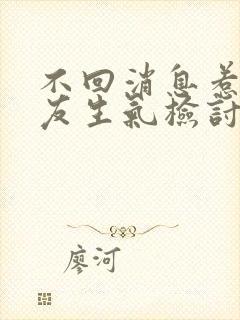 不回消息惹
友生氣檢討
廖河